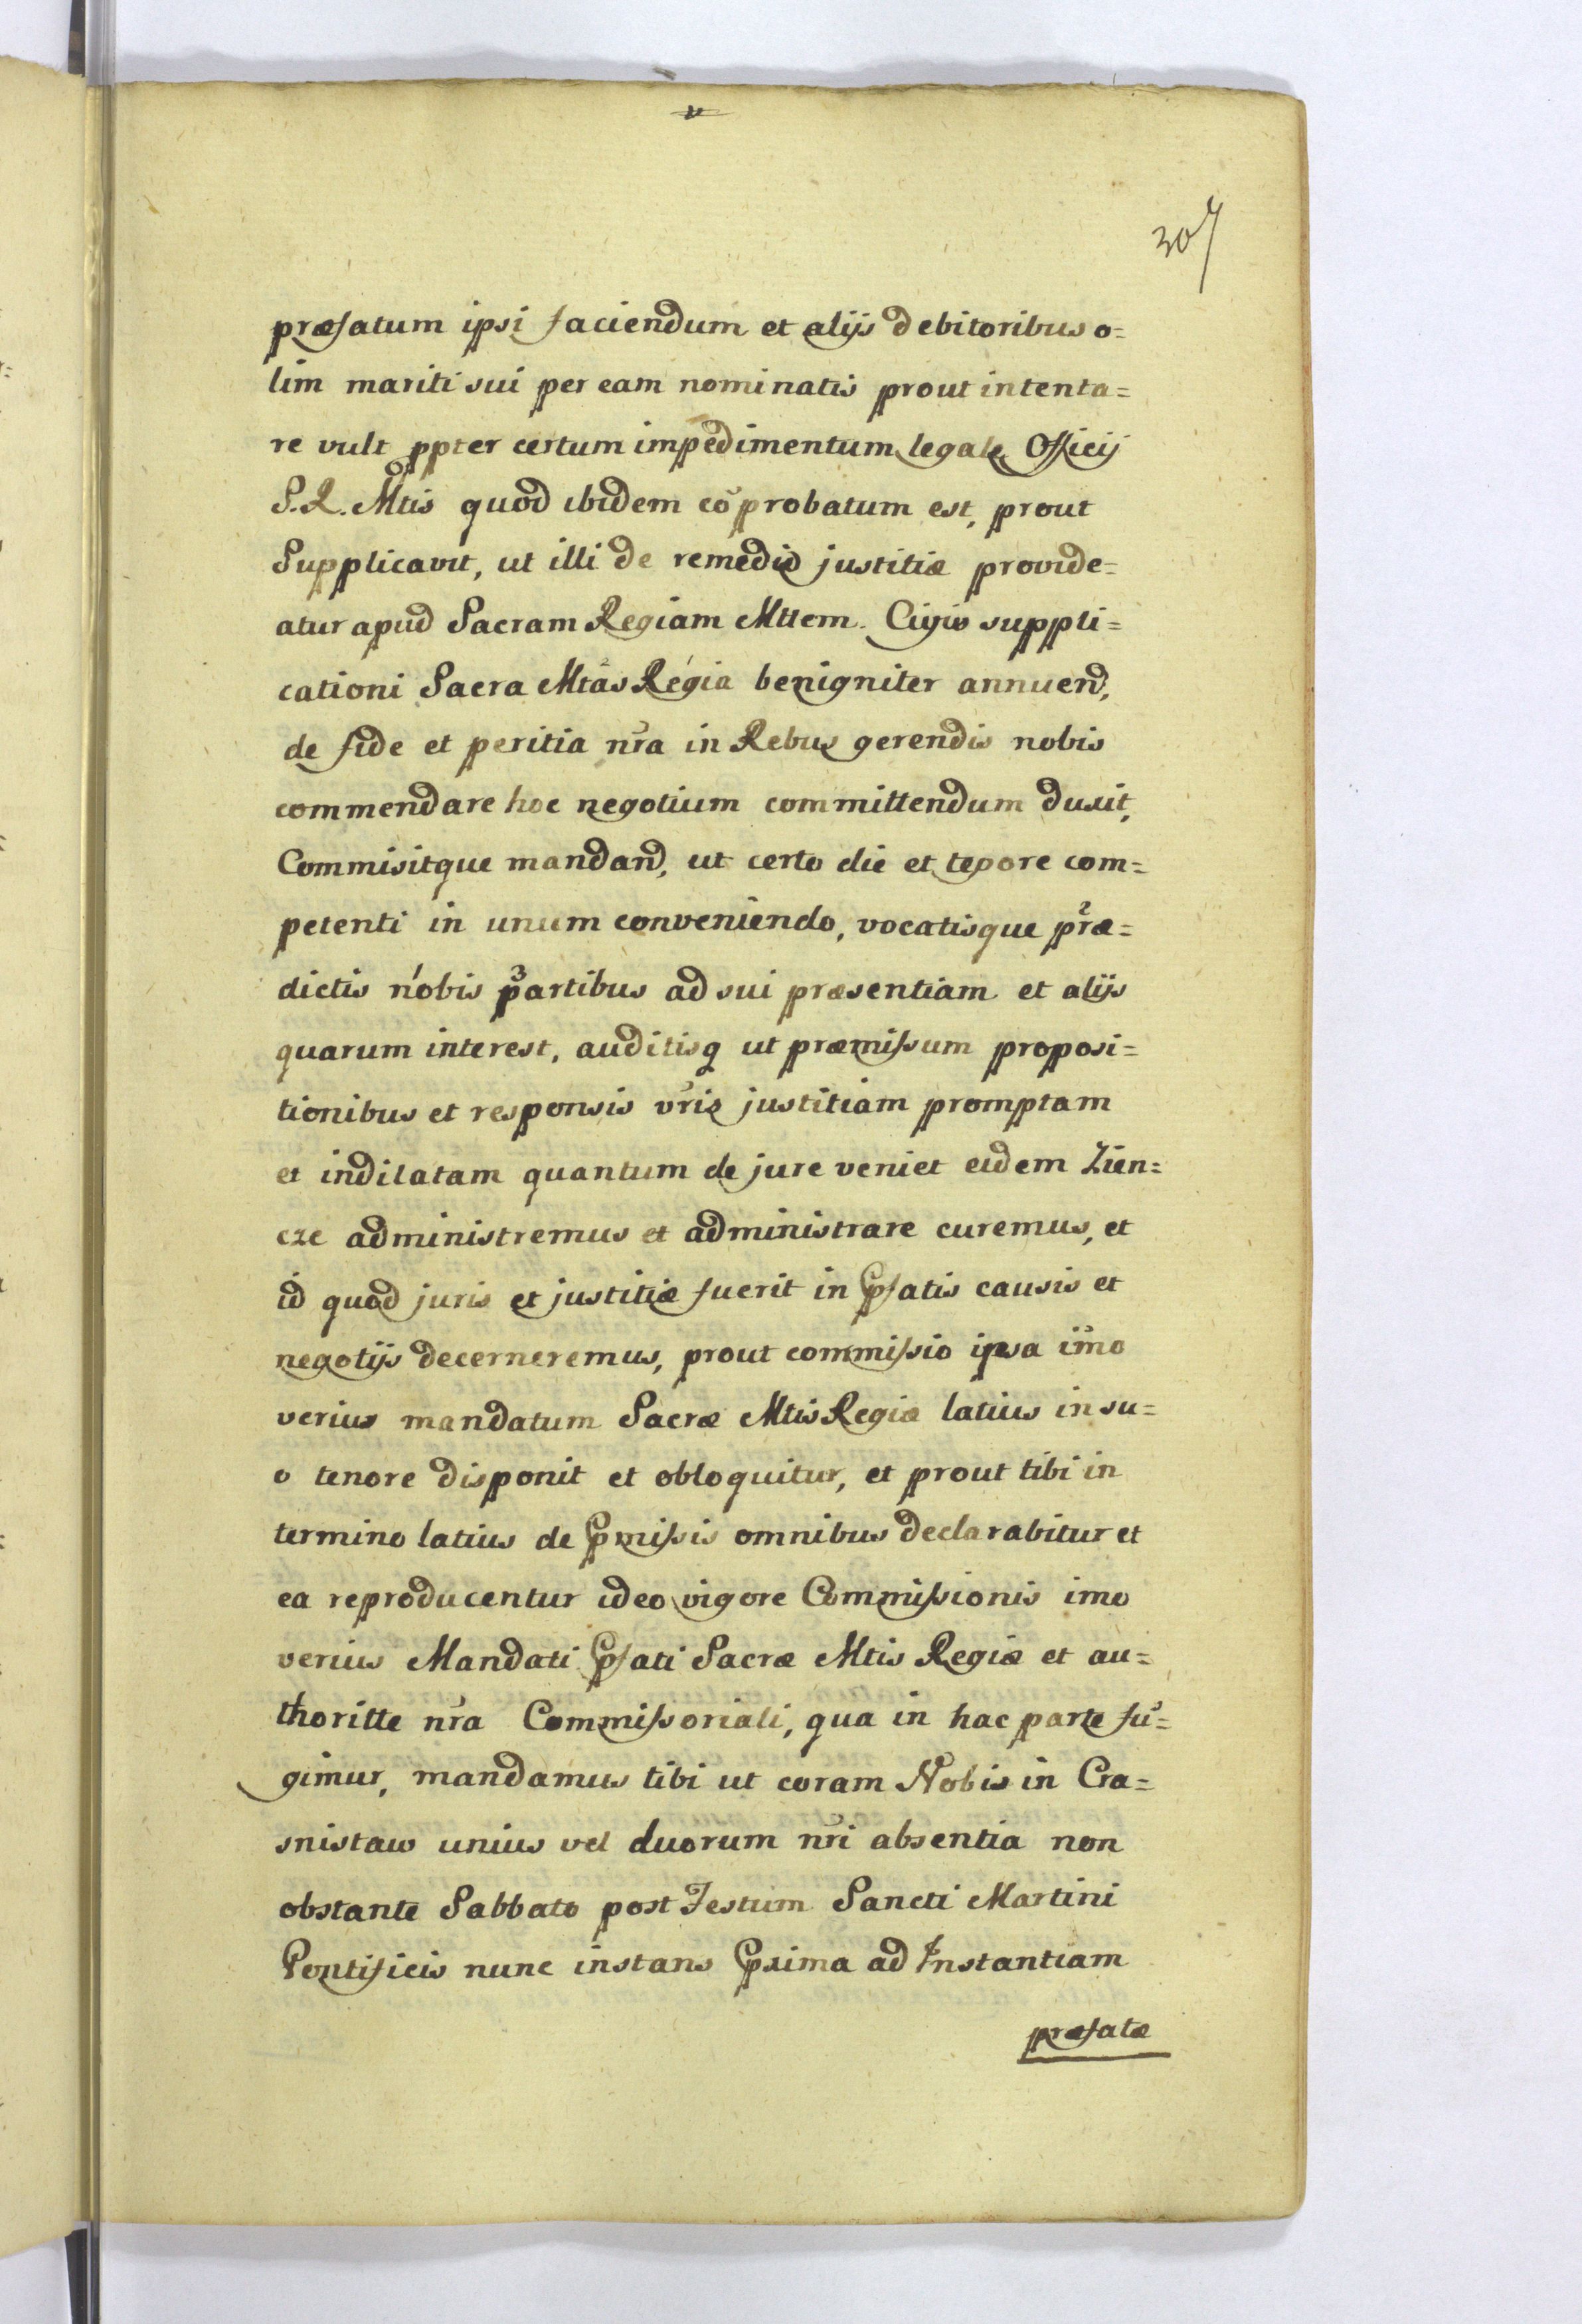 307
præfatum ipsi faciendum et alijs debitoribus o=
lim mariti sui per eam nominatis prout intenta=
re vult ppter certum impedimentum legale Officij
S. R. Mtis quod ibidem cōprobatum est, prout
Supplicavit, ut illi de remedio justitiæ provide=
atur apud Sacram Regiam Mttem. Cujus suppli=
cationi Sacra Mtas Regia benigniter annuend,
de fide et peritia nr̃a in Rebus gerendis nobis
commendare hoc negotium committendum duxit,
Commisitque mandand, ut certo die et tēpore com=
petenti in unum conveniendo, vocatisque præ=
dictis nobis partibus ad sui præsentiam et alijs
quarum interest, auditisq ut præmissum proposi=
tionibus et responsis vr̃is justitiam promptam
et indilatam quantum de jure veniet eidem Zien=
cze administremus et administrare curemus, et
id quod juris et justitiæ fuerit in pfatis causis et
negotijs decerneremus, prout commissio ipsa im̃o
verius mandatum Sacræ Mtis Regiæ latius in su=
o tenore disponit et obloquitur, et prout tibi in
termino latius de pmissis omnibus declarabitur et
ea reproducentur ideo vigore Commissionis imo
verius Mandati pfati Sacræ Mtis Regiæ et au=
thoritte nr̃a Commissoriali, qua in hac parte fũ=
gimur, mandamus tibi ut coram Nobis in Cra=
snistaw unius vel duorum nr̃i absentia non
obstante Sabbato post Festum Sancti Martini
Pontificis nunc instans pxima ad Instantiam
præfatæ